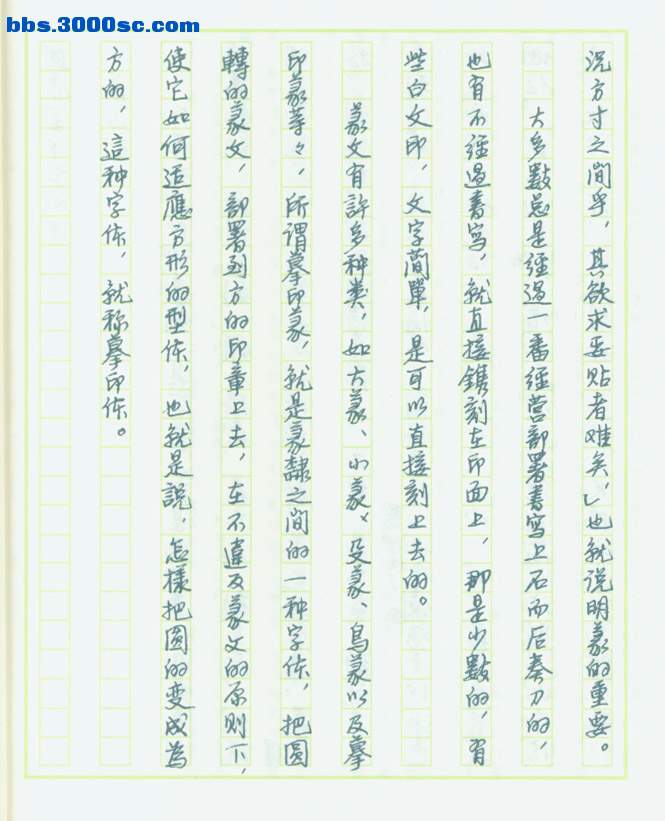 bbs.3000sc.com
況方寸之間乎，其欲求妥貼者难矣，」也就说明篆的重要。
大多數总是經過一番經营部署書写上石而后奏刀的，
也有不經過書写，就直接鐫刻在印面上，那是少數的，有
些白文印，文字简單，是可以直接刻上去的。
篆文有許多种类，如大篆、小篆、殳篆、鳥篆以及摹
印篆等々，所谓摹印篆，就是篆隸之间的一种字体，把圆
轉的篆文，部署到方的印章上去，在不違反篆文的原则下，
使它如何适應方形的型体，也就是説，怎樣把圆的变成為
方的，這种字体，就称摹印体。